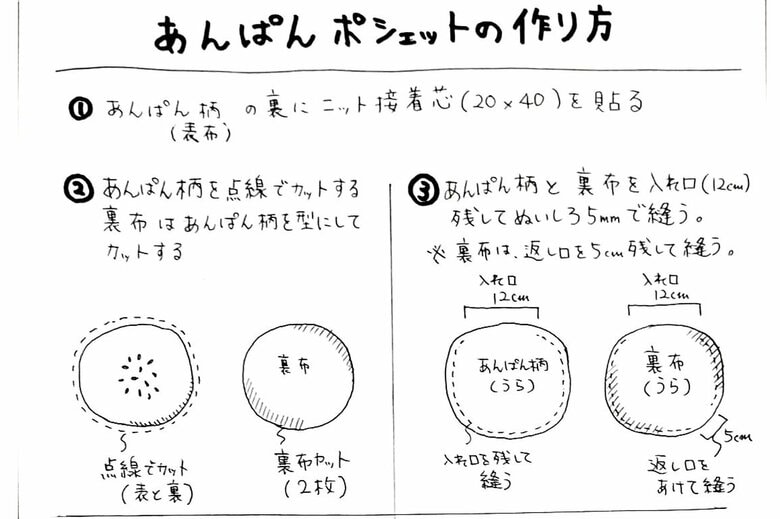 あんぱん ポシェットの作り方
① あんぱん柄 の裏にニット接着芯(20×40)を貼る
(表布)
② あんぱん柄を点線でカットする
裏布はあんぱん柄を型にして
カットする
裏布
点線でカット
(表と裏)
裏布カット
(2枚)
③ あんぱん柄と裏布を入れ口(12cm)
残してぬいしろ5mmで縫う。
※裏布は、返し口を5cm残して縫う。
入れ口
12cm
あんぱん柄
(うら)
入れ口を残して
縫う
入れ口
12cm
裏布
(うら)
5cm
返し口を
あけて縫う